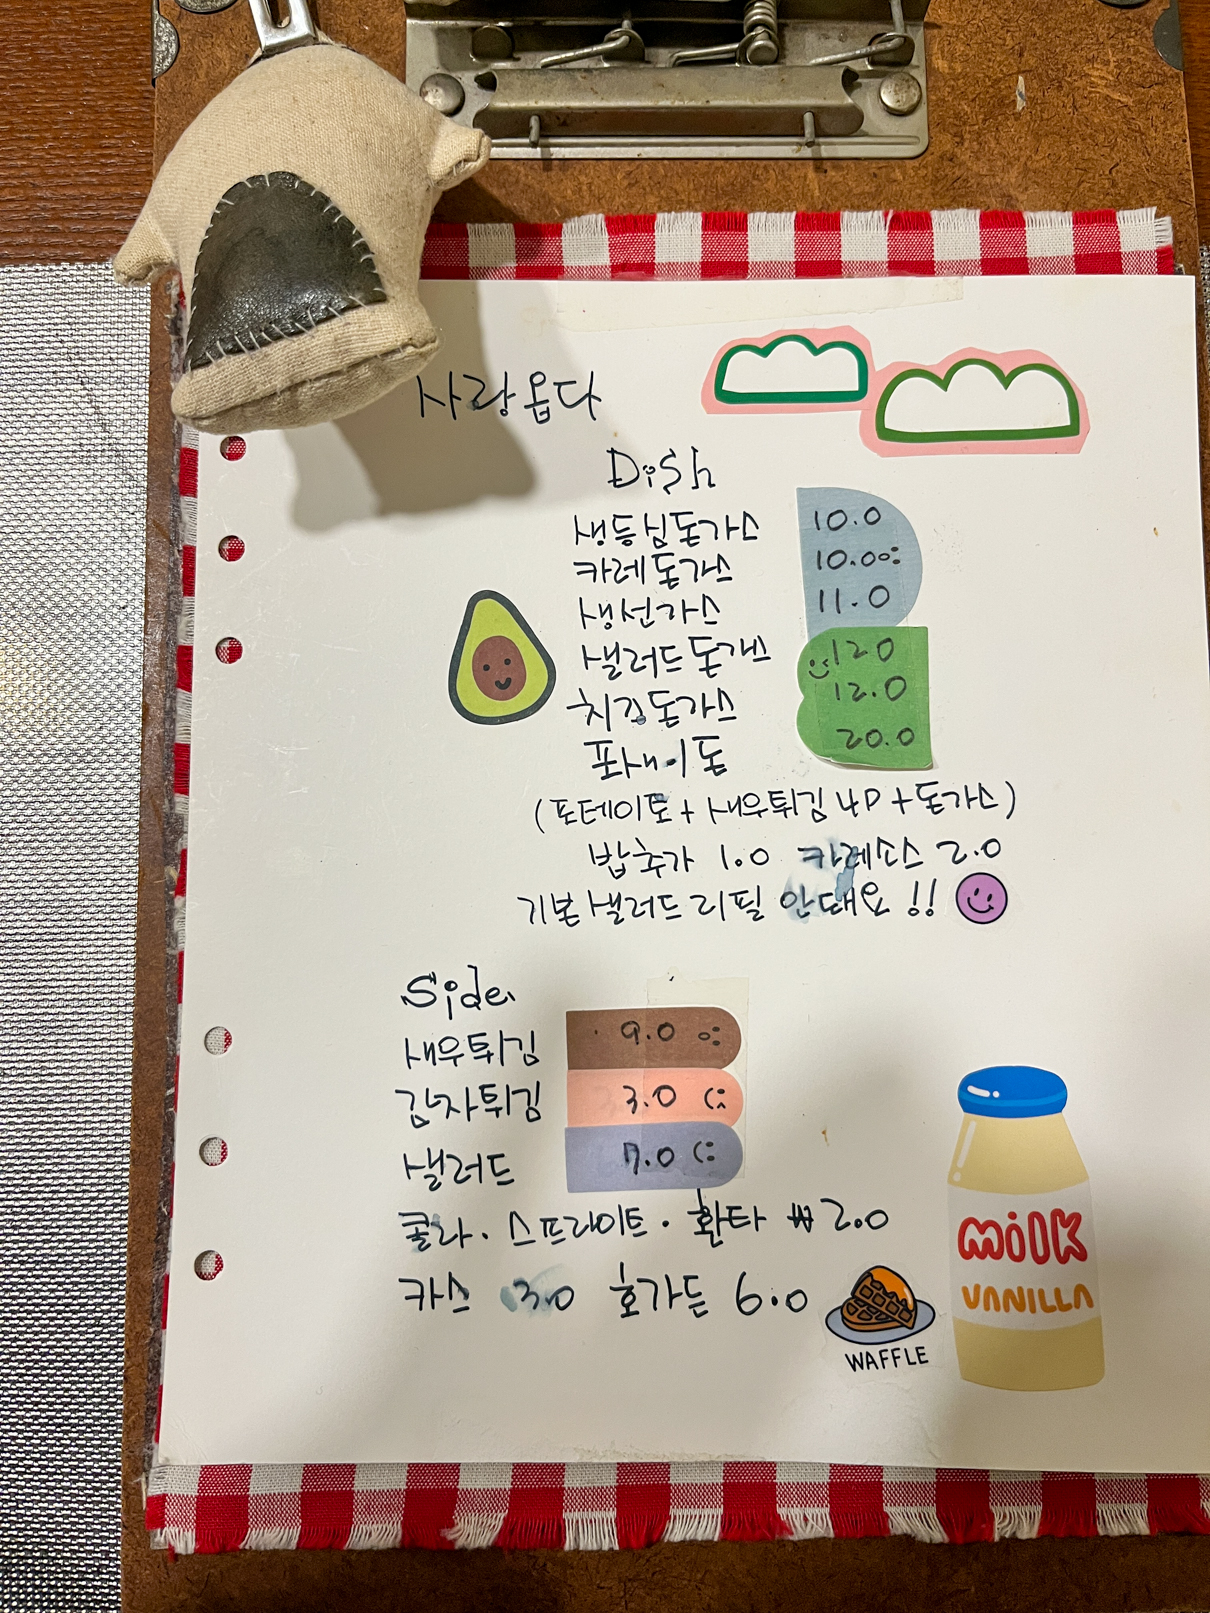 사랑옵다
Dish
생등심돈가스 10.0
카레돈가스 10.0
생선가스 11.0
샐러드돈가스 12.0
치킨돈가스 12.0
포새이돈 20.0
(포테이토+새우튀김 4P+돈가스)
밥추가 1.0 카레소스 2.0
기본샐러드 리필 안돼요 !!
Side
새우튀김 9.0
감자튀김 3.0
샐러드 7.0
콜라 · 스프라이트 · 환타 ₩2.0
카스 3.0 호가든 6.0
WAFFLE
MilK
VANILLA